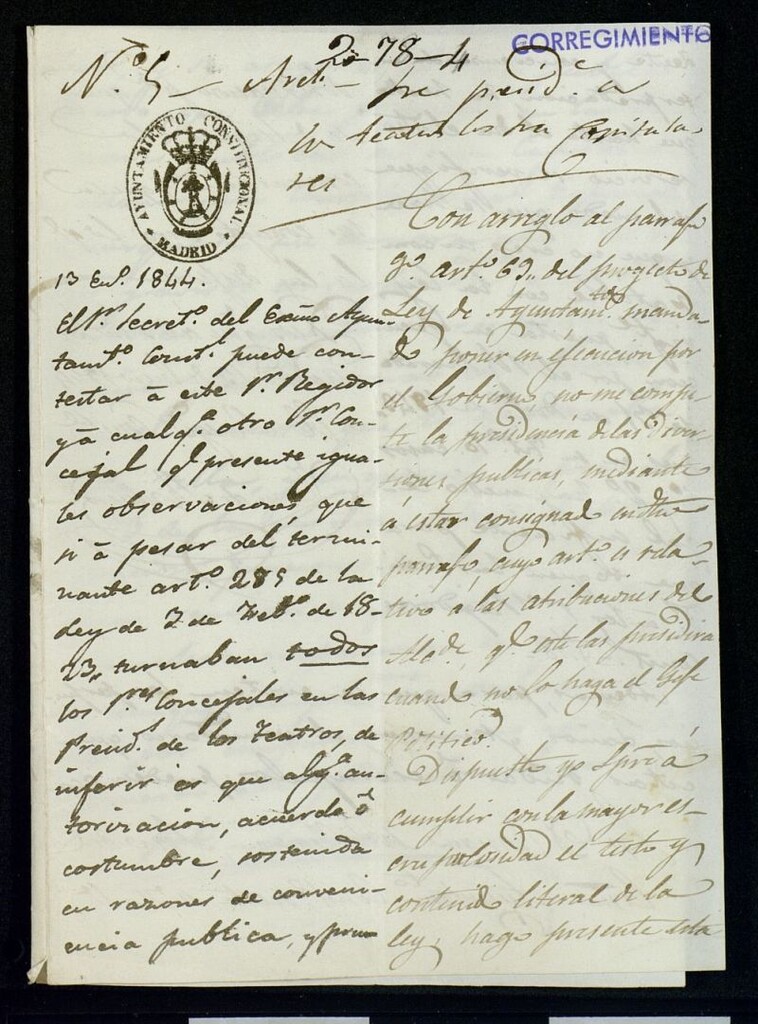 CORREGIMIENTO
2-78-4
Nº 5 - Arch. -
los teatros los tres Capitula-
res
AYUNTAMIENTO CONSTITUCIONAL
MADRID
13 Enº 1844.
El Sr. Secretº del Exmo Ayun-
tamtº Constl puede con-
testar á este Sr. Regidor
y á cualqª otro Sr. Con-
cejal q presente igua-
les observaciones, que
si á pesar del termi-
nante artº 285 de la
Ley de 3 de Febº de 18-
23, turnaban todos
los Sres Concejales en las
Presidª de los Teatros, de
inferir es que algª au-
torizacion, acuerdo ó
costumbre, sostenida
en razones de conveni-
encia publica, y
Con arreglo al parrafo
9º artº 69 del proyecto de
Ley de Ayuntamtos manda-
do poner en egecucion por
el Gobierno, no me compe-
te la presidencia de las Diver-
siones publicas, mediante
á estar consignado en dho
parrafo, cuyo artº es rela-
tivo á las atribuciones del
Alcde, qe este las presidirá
cuando no lo haga el Gefe
Politico.
Dispuesto yo spre á
cumplir con la mayor es-
crupulosidad el testo y
contenido literal de la
ley, hago presente esta